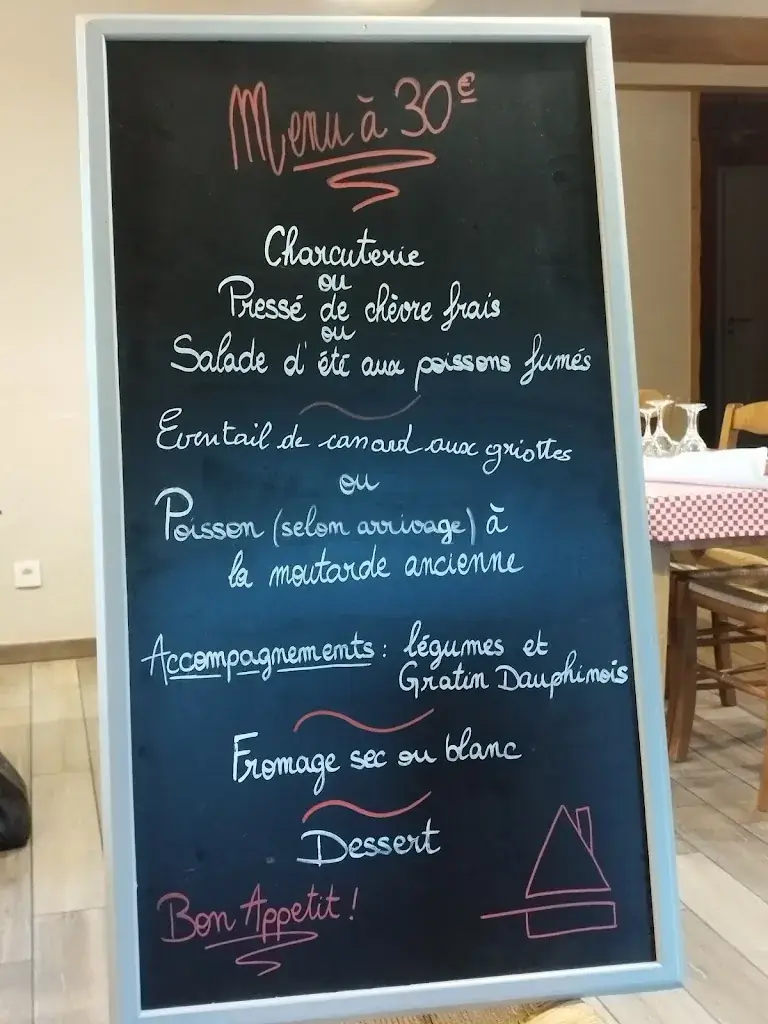 Menu à 30€
Charcuterie
ou
Pressé de chèvre frais
ou
Salade d'été aux poissons fumés
Eventail de canard aux griottes
ou
Poisson (selon arrivage) à
la moutarde ancienne
Accompagnements : légumes et
Gratin Dauphinois
Fromage sec ou blanc
Dessert
Bon Appetit !